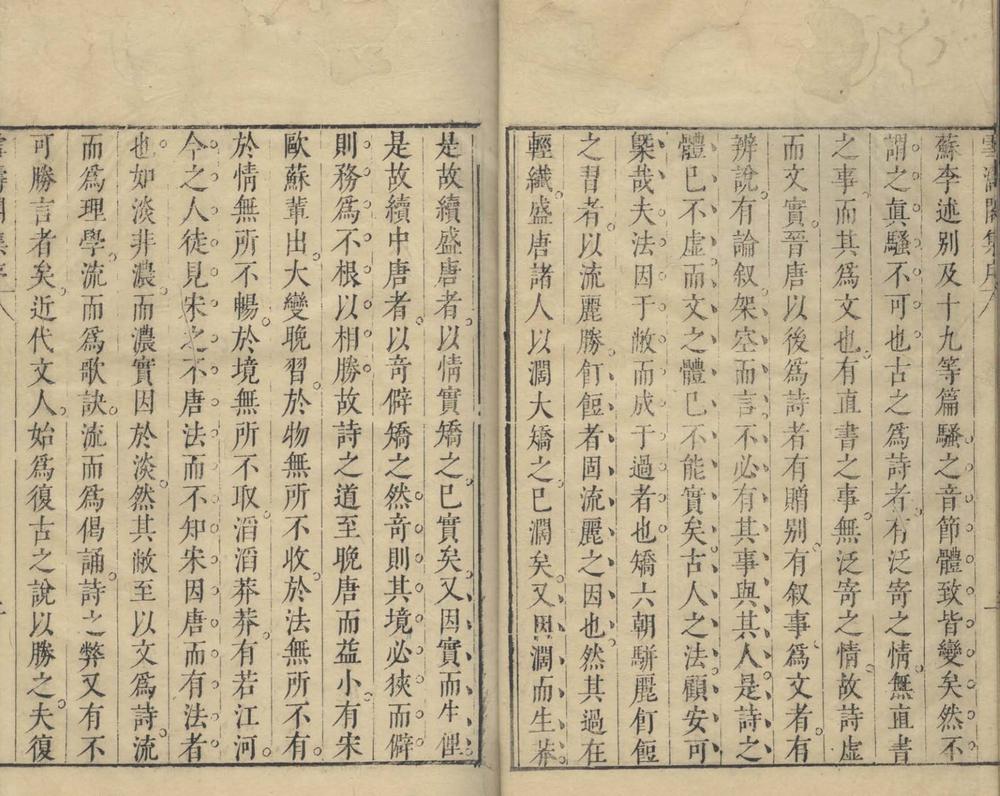 蘇李述别及十九等篇騷之音節體致皆變矣然不
謂之真騷不可也古之爲詩者有泛寄之情無直書
之事而其爲文也有直書之事無泛寄之情故詩虚
而文實晉唐以後爲詩者有贈别有叙事爲文者有
辨說有論叙架空而言不必有其事與其人是詩之
體已不虚而文之體已不能實矣古人之法顧安可
槩哉夫法因于敝而成于過者也矯六朝駢麗飣餖
之習者以流麗勝飣餖者固流麗之因也然其過在
輕纎盛唐諸人以濶大矯之已濶矣又因濶而生莽
是故續盛唐者以情實矯之已實矣又因實而生俚
是故續中唐者以奇僻矯之然奇則其境必狹而僻
則務爲不根以相勝故詩之道至晚唐而益小有宋
歐蘇輩出大變晚習於物無所不收於法無所不有
於情無所不暢於境無所不取滔滔莽莽有若江河
今之人徒見宋之不唐法而不知宋因唐而有法者
也如淡非濃而濃實因於淡然其敝至以文爲詩流
而爲理學流而爲歌訣流而爲偈誦詩之弊又有不
可勝言者矣近代文人始爲復古之說以勝之夫復